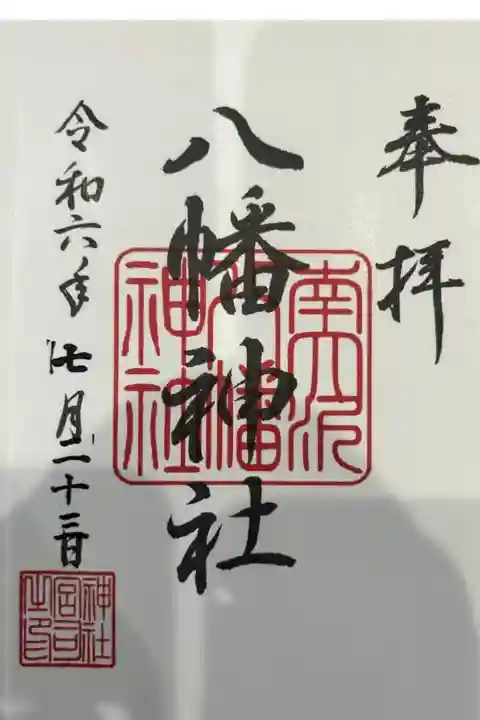 奉拝
八幡神社
令和六年七月二十三日
八幡
神社
神社
宮司
之印